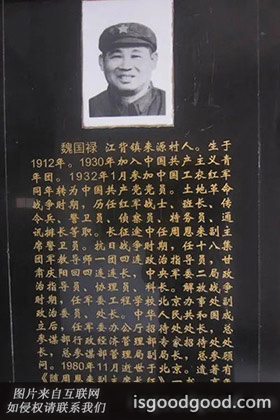 魏国禄 江背镇来源村人。生于
1912年。1930年加入中国共产主义青
年团。1932年1月参加中国工农红军
同年转为中国共产党党员。土地革命
战争时期，历任红军战士、班长、传
令兵、警卫员、侦察员、特务员、通
讯排长等职。长征途中任周恩来副主
席警卫员。抗日战争时期，任十八集
团军教导师一团四连政治指导员，甘
肃庆阳回四连连长，中央军委二局政
治指导员、协理员、科长。解放战争
时期，任军委工程学校北京办事处副
政治委员、处长。中华人民共和国成
立后，任军委办公厅招待处处长，总
参谋部行政经济管理部专家招待处处
长，总参谋部管理局副局长，总参顾
问。1980年11月逝世于北京。遗著有
《随周恩来副主席长征》一书
图片来自互联网
如侵权请联系我们
isgoodgood.com